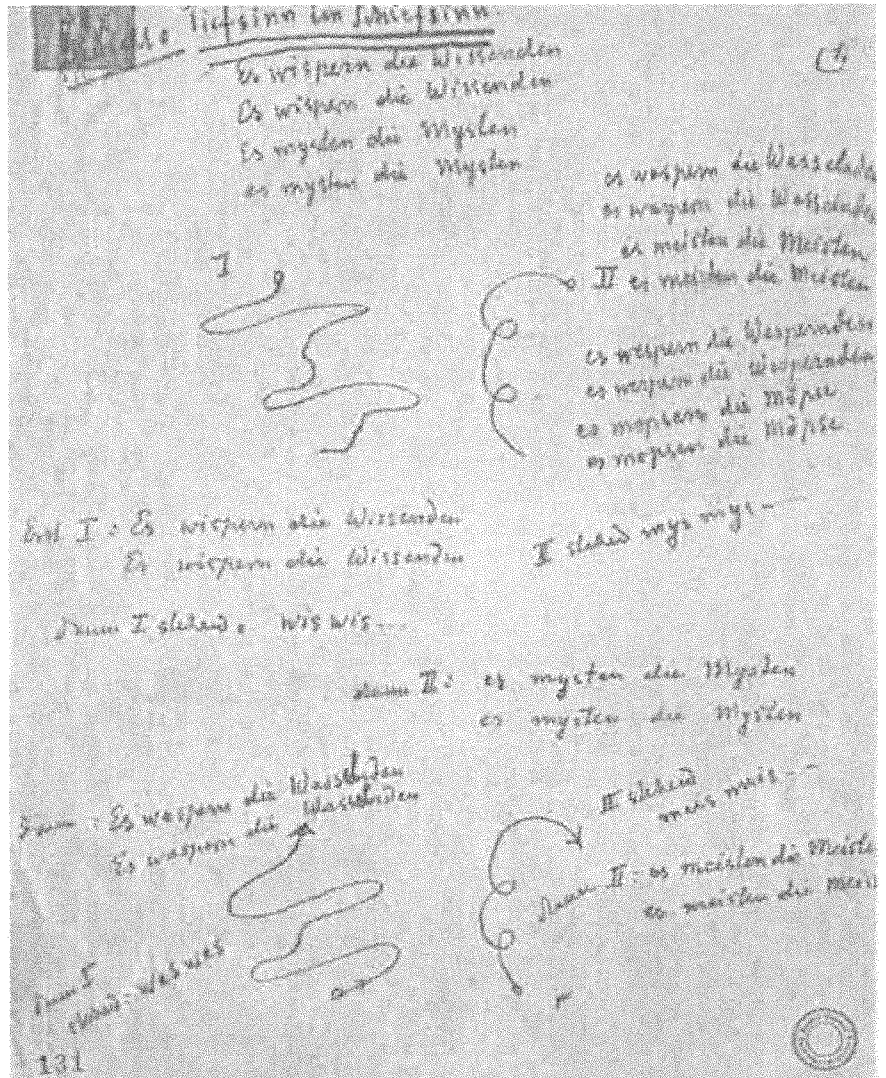 Tiefsinn im Schiefsinn
Es wispern die Wissenden
Es wispern die Wissenden
Es mysten die Mysten
es mysten die Mysten
es waspern die
es waspern die
es meisten die Meisten
I
II es meisten die Meisten
es wespern die Wespernden
es wespern die Wespernden
es mopsen die Möpse
es mopsen die Möpse
Erst I: Es wispern die Wissenden
Es wispern die Wissenden
II stehend mys mys --
Dann I stehend: wis wis...
dann II: es mysten die Mysten
es mysten die Mysten
Dann: Es waspern die
Es waspern die
II stehend
meis meis --
Dann II: es meisten die
es meisten die
Dann I
stehend: was was
131